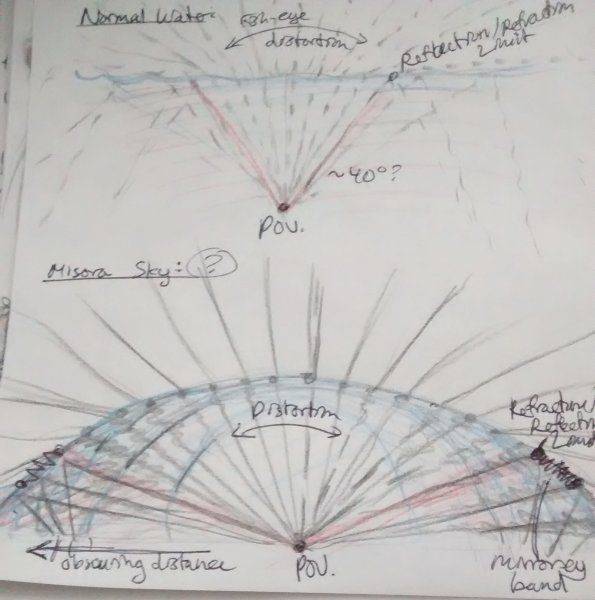 Normal Water
Fish-eye
distortion
Reflection/refraction
Limit
~40°?
POV.
Misora Sky: ?
Distortion
Refraction/
Reflection
Limit
obscuring distance
POV.
mirrorey
band